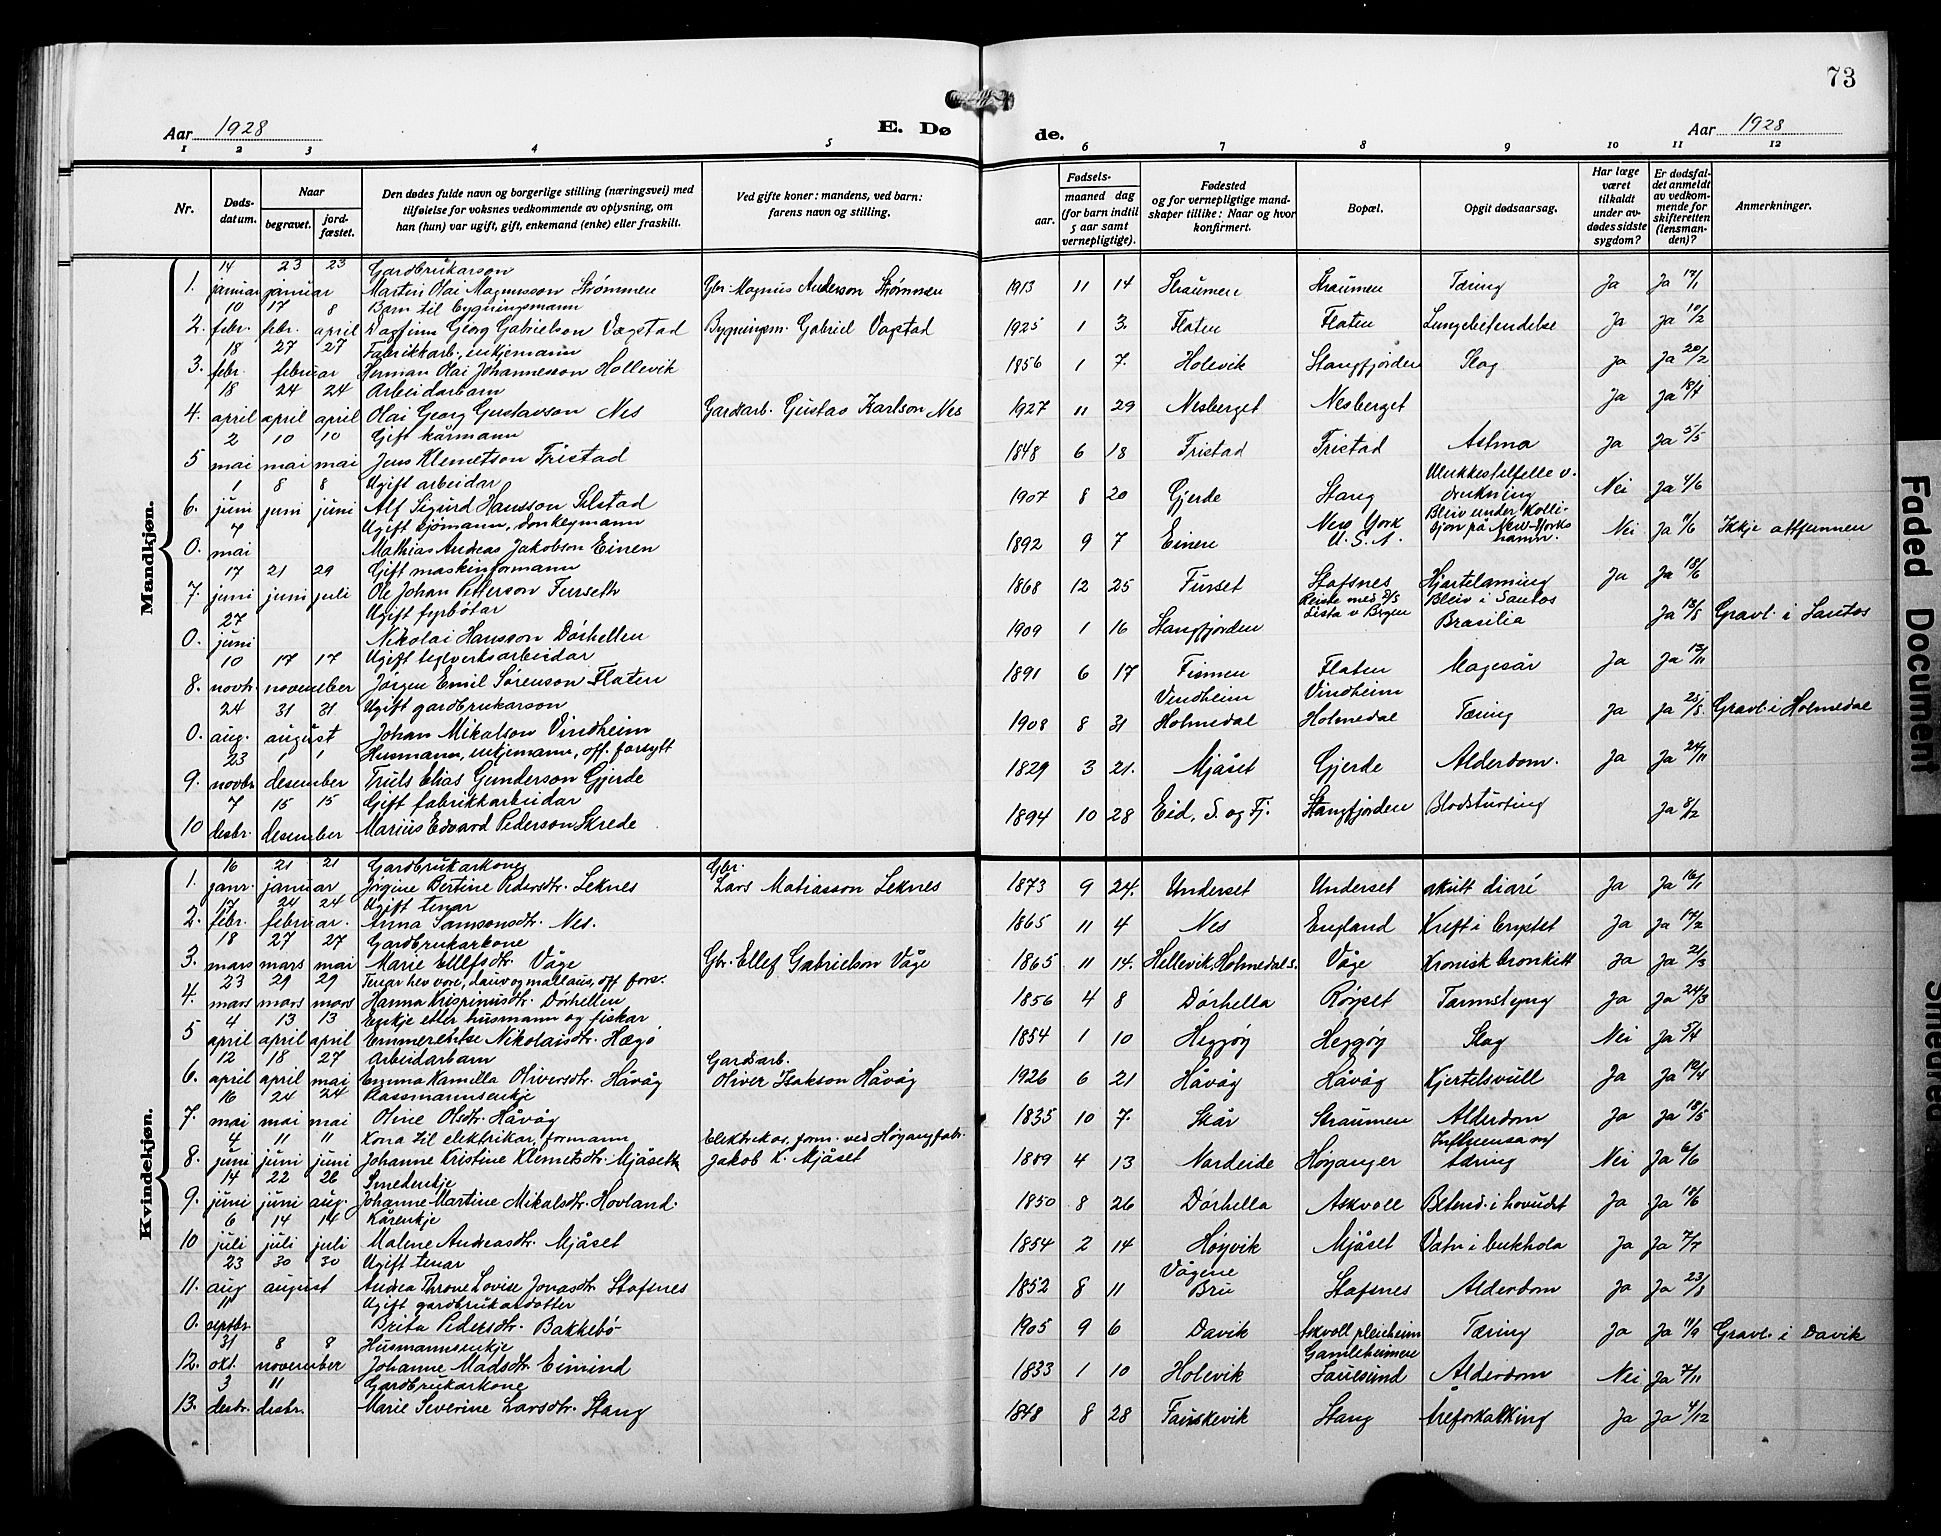 73
Aar 1928
E. Dø
de.
Aar 1928
1 2 3 4 5 6 7 8 9 10 11 12
Nr.
Døds-
datum.
Naar
begravet.
jord-
fæstet.
Den dødes fulde navn og borgerlige stilling (næringsvei) med
tilføielse for voksnes vedkommende av oplysning, om
han (hun) var ugift, gift, enkemand (enke) eller fraskilt.
Ved gifte koner: mandens, ved barn:
farens navn og stilling.
Fødsels-
aar.
maaned dag
(for barn indtil
5 aar samt
vernepligtige).
Fødested
og for vernepligtige mand-
skaper tillike: Naar og hvor
konfirmert.
Bopæl.
Opgit dødsaarsag.
Har læge
været
tilkaldt
under av-
dødes sidste
sygdom?
Er dødsfal-
det anmeldt
av vedkom-
mende for
skifteretten
(lensman-
den)?
Anmerkninger.
Mandkjøn.
14 23 23 Gardbrukarson
1. januar januar Martin Olai Magnusson Strømmen Gbr. Magnus Anderson Strømmen 1913 11 14 Straumen Straumen Tæring Ja Ja 17/1
10 17 8 Barn til bygningsmann
2. febr. febr. april Dagfinn Georg Gabrielson Vagstad Bygningsm. Gabriel Vagstad 1925 1 3. Flaten Flaten Lungebetendelse Ja Ja 10/2
18 27 27 Fabrikkarb., enkjemann
3. febr. februar Herman Olai Johannesson Hollevik 1856 1 7. Holevik Stangfjorden Slag Ja Ja 20/2
18 24 24 Arbeidarbarn
4. april april april Olai Georg Gustavson Nes Gardsarb. Gustav Karlson Nes 1927 11 29 Nesberget Nesberget Ja Ja 18/4
2 10 10 Gift kårmann
5 mai mai mai Jens Klemetson Tristad 1848 6 18 Tristad Tristad Astma Ja Ja 5/5
1 8 8 Ugift arbeidar
6. juni juni juni Alf Sigurd Hansson Silstad 1907 8 20 Gjerde Stang Ulukkestilfelle v. drukning Nei Ja 4/6
7 Ugift sjømann, donkeymann
0. mai Mathias Andreas Jakobson Einen 1892 9 7 Einen New York U.S.A. Bleiv under kolli-
sjon på New-Yorks
hamn. Nei Ja 11/6 Ikkje attfunnen
17 21 29 Gift maskinformann
7. juni juni juli Ole Johan Petterson Furseth 1868 12 25 Furset Stafsnes Hjartelaming Ja Ja 18/6
27 Ugift fyrbøtar
0. juni Nikolai Hansson Dørhellen 1909 1 16 Stangfjorden Reiste med D/S
Lista v Bergen Bleiv i Santos
Brasilia Ja 13/8 Gravl. i Santos
10 17 17 Ugift teglverksarbeidar
8. novbr. november Jørgen Emil Sørenson Flaten 1891 6 17 Fismen Flaten Magesår Ja Ja 12/11
24 31 31 Ugift gardbrukarson
0. aug. august Johan Mikalson Vindheim 1908 8 31 Vindheim
Holmedal Vindheim
Holmedal Tæring Ja Ja 25/8 Gravl. i Holmedal
23 1 1 Husmann, enkjemann, off. forsytt
9. novbr desember Truls Elias Gunderson Gjerde 1829 3 21. Mjåset Gjerde Alderdom. Ja Ja 24/11
7 15 15 Gift fabrikkarbeidar
10 desbr. desember Marius Edvard Pederson Skrede 1894 10 28 Eid, S. og Fj. Stangfjorden Blodstyrting Ja 8/12
Kvindekjøn.
16 21 21 Gardbrukarkone Gbr.
1. janr. januar Jørgine Bertine Pedersdtr. Leknes Lars Matiasson Leknes 1873 9 24. Underset Underset akutt diaré Ja Ja 16/1
17 24 24 Ugift tenar
2. febr. februar. Anna Samsonsdtr. Nes. 1865 11 4 Nes England Kreft i brystet Ja Ja 17/2
18 27 27 Gardbrukarkone
3. mars mars mai Marie Ellefsdtr. Våge Gbr. Ellef Gabrielson Våge 1865 11 14. Hellevik, Holmedal s. Våge Kronisk bronkitt Ja Ja 21/3
23 29 29 Tenar hev vore, dauv og mållaus, off fors.
4. mars mars mars Hanna Krispinusdtr. Dørhellen 1856 4 8 Dørhella Røyset Tarmslyng Ja Ja 24/3
4 13 13 Enkje etter husmann og fiskar
5 april april april Emmerentse Nikolaisdtr. Hægø 1854 1 10 Heggøy Heggøy Slag Nei Ja 5/4
12 18 27 Arbeidarbarn Gardsarb.
6. april april mai Emma Kamilla Oliversdtr. Håvåg Oliver Isakson Håvåg 1926 6 21 Håvåg Håvåg Kjertelsvull Ja Ja 12/4
16 24 24 Plassmannsenkje
7. mai mai mai Oline Olsdtr. Håvåg 1835 10 7. Skår Straumen Alderdom Ja Ja 18/5
4 11 11 Kona til elektrikar, formann Elektrikar, form. ved Høyang fabr.
8. juni juni juni Johanne Kristine Klemetsdtr. Mjåseth Jakob K. Mjåset 1889 4 13 Nardeide Høyanger Influensa og
tæring Nei Ja 6/6
14 22 26 Smedenkje
9. juni juni aug. Johanne Martine Mikalsdtr. Hovland. 1850 8 26 Dørhella Askvoll Betend. i hovudet Ja Ja 18/6
6 14 14 Kårenkje
10 juli juli juli Malene Andreasdtr. Mjåset 1854 2 14 Høyvik Mjåset Vatn i bukhola Ja Ja 7/7
23 30 30 Ugift tenar
11. aug august Andrea Throne Lovise Jonasdtr. Stafsnes 1852 8 11 Vågene
Bru Stafsnes Alderdom Ja Ja 23/8
11 Ugift gardbrukardotter
0. septbr. Brita Pedersdtr. Bakkebø 1905 9 6 Davik Askvoll pleieheim Tæring Ja Ja 11/9 Gravl. i Davik
31 8 8 Husmannsenkje
12. okt. november Johanne Madsdtr. Eimind 1833 1 10 Holevik Gamleheimen
Sauesund Alderdom Nei Ja 7/11
3 11 Gardbrukarkone
13. desbr. desbr. Marie Severine Larsdtr. Stang 1848 8 28 Fauskevik Stang Åreforkalking Ja Ja 4/12
Faded Document